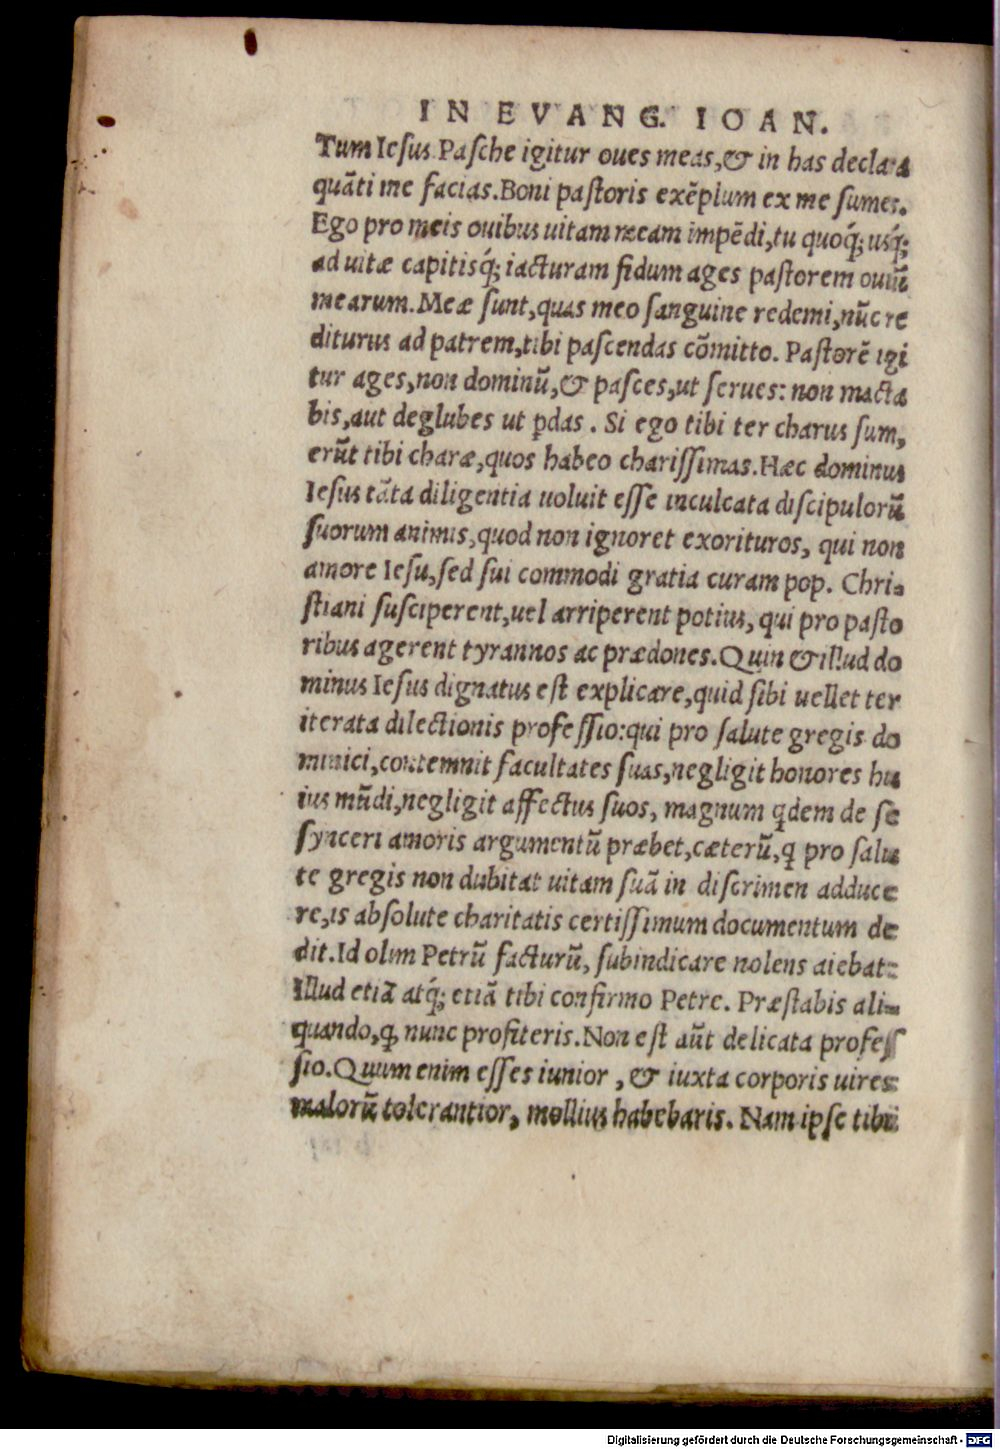 IN EVANG. IOAN.
Tum Iesus Pasche igitur oues meas,& in has declara
quāti me facias.Boni pastoris exēplum ex me sumes.
Ego pro meis ouibus uitam meam impēdi,tu quoq́; usq́;
ad uitæ capitisq́; iacturam fidum ages pastorem ouiū
mearum.Meæ sunt,quas meo sanguine redemi,nūc re
diturus ad patrem,tibi pascendas cōmitto. Pastorē igi
tur ages,non dominū,& pasces,ut serues: non macta
bis,aut deglubes ut p̱das . Si ego tibi ter charus sum,
erūt tibi charæ,quos habeo charissimas.Hæc dominus
Iesus tāta diligentia uoluit esse inculcata discipulorū
suorum animis,quod non ignoret exorituros, qui non
amore Iesu,sed sui commodi gratia curam pop. Chri-
stiani susciperent,uel arriperent potius, qui pro pasto
ribus agerent tyrannos ac prædones.Quin & illud do
minus Iesus dignatus est explicare,quid sibi uellet ter
iterata dilectionis professio:qui pro salute gregis do
minici,contemnit facultates suas,negligit honores hu
ius mūdi,negligit affectus suos, magnum qdem de se
synceri amoris argumentū præbet,cæterū,q pro salu
te gregis non dubitat uitam suā in discrimen adduce
re,is absolute charitatis certissimum documentum de
dit.Id olim Petrū facturū, subindicare nolens aiebat:
Illud etiā atq́; etiā tibi confirmo Petre. Præstabis ali-
quando,q, nunc profiteris.Non est aūt delicata profes
sio.Quum enim esses iunior , & iuxta corporis uires
malorū tolerantior, mollius habebaris. Nam ipse tibi
Digitalisierung gefördert durch die Deutsche Forschungsgemeinschaft - DFG